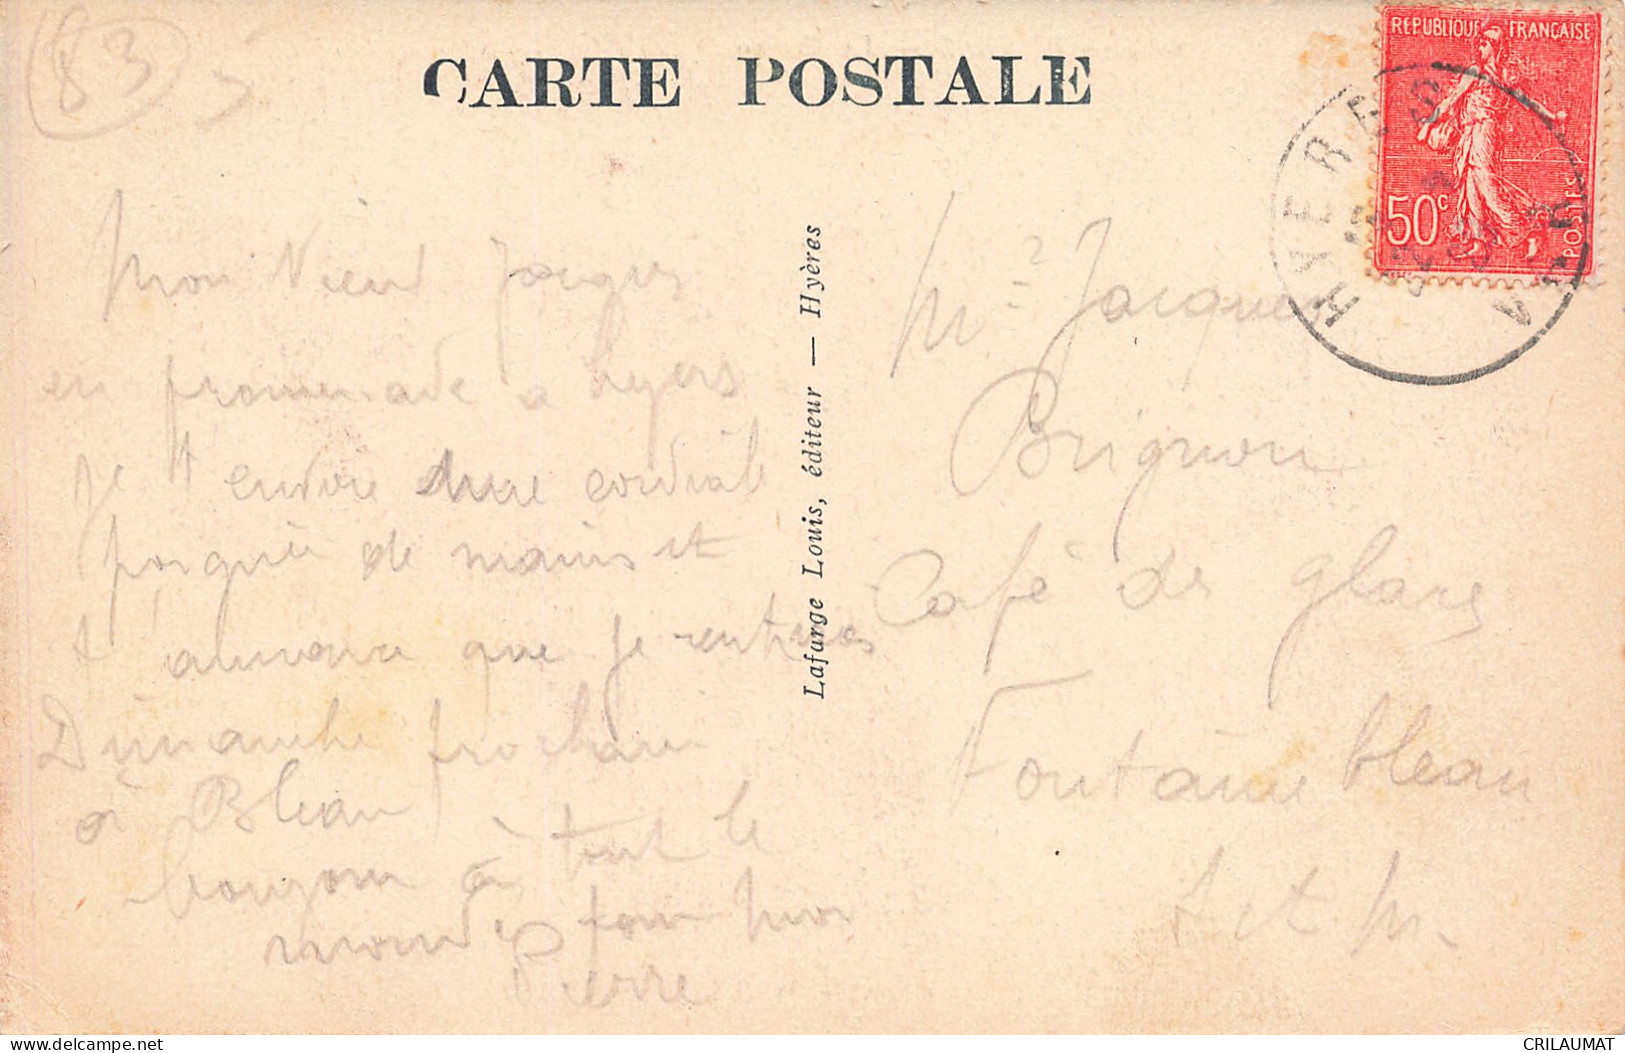 83
CARTE POSTALE
REPUBLIQUE FRANÇAISE
50c
POSTES
HYERES
VAR
Mon Vieux Jacques
en promenade a hyers
je t'envoie une cordiale
poignée de mains et
t'annonce que je rentrerai
Dimanche prochain
à Bleau
bonjour à tout le
monde pour moi
Pierre
Lafarge Louis, éditeur — Hyères
Mr Jacques
Brignon
Café des glaces
Fontainebleau
S et M.
delcampe.net
CRILAUMAT